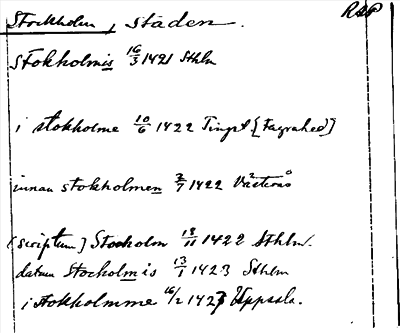 Stockholm, staden. RAP
stokholmis 16/3 1421 Sthlm
i stokholme 10/6 1422 Tingst [Fagrahed]
innan stokholmen 2/7 1422 Västerås
[scriptum] Stocholm 18/11 1422 Sthlm.
datum Stocholmis 13/1 1423 Sthlm
i stokholmme 16/2 1423 Uppsala.